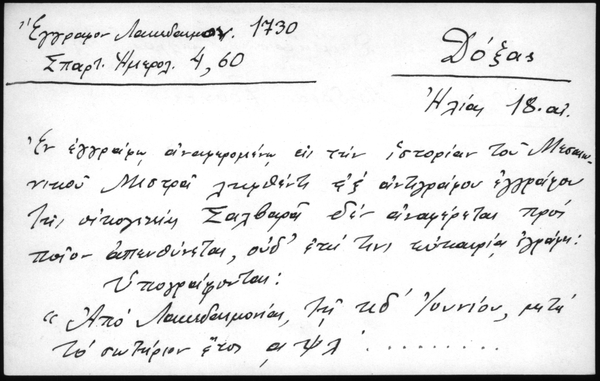 Ἔγγραφον Λακεδαιμον. 1730
Σπαρτ. Ἡμερολ. 4, 60
Δόξας
Ἠλίας 18. αι.
Ἐν ἐγγράφῳ ἀναφερομένῳ εις τὴν ἱστορίαν τοῦ Μεσαιω-
νικοῦ Μυστρᾶ ληφθέντι ἐξ ἀντιγράφου ἐγγράφου
τῆς οἰκογενείας Σαλβαρᾶ δέν ἀναφέρεται πρός
ποῖον ἀπευθύνεται, οὐδ' ἐπί τινι εὐκαιρίᾳ ἐγράφη:
Ὑπογράφονται:
"Ἀπό Λακεδαιμονίας, τῇ κδ' Ἰουνίου, μετά
τό σωτήριον ἔτος αψλ .........